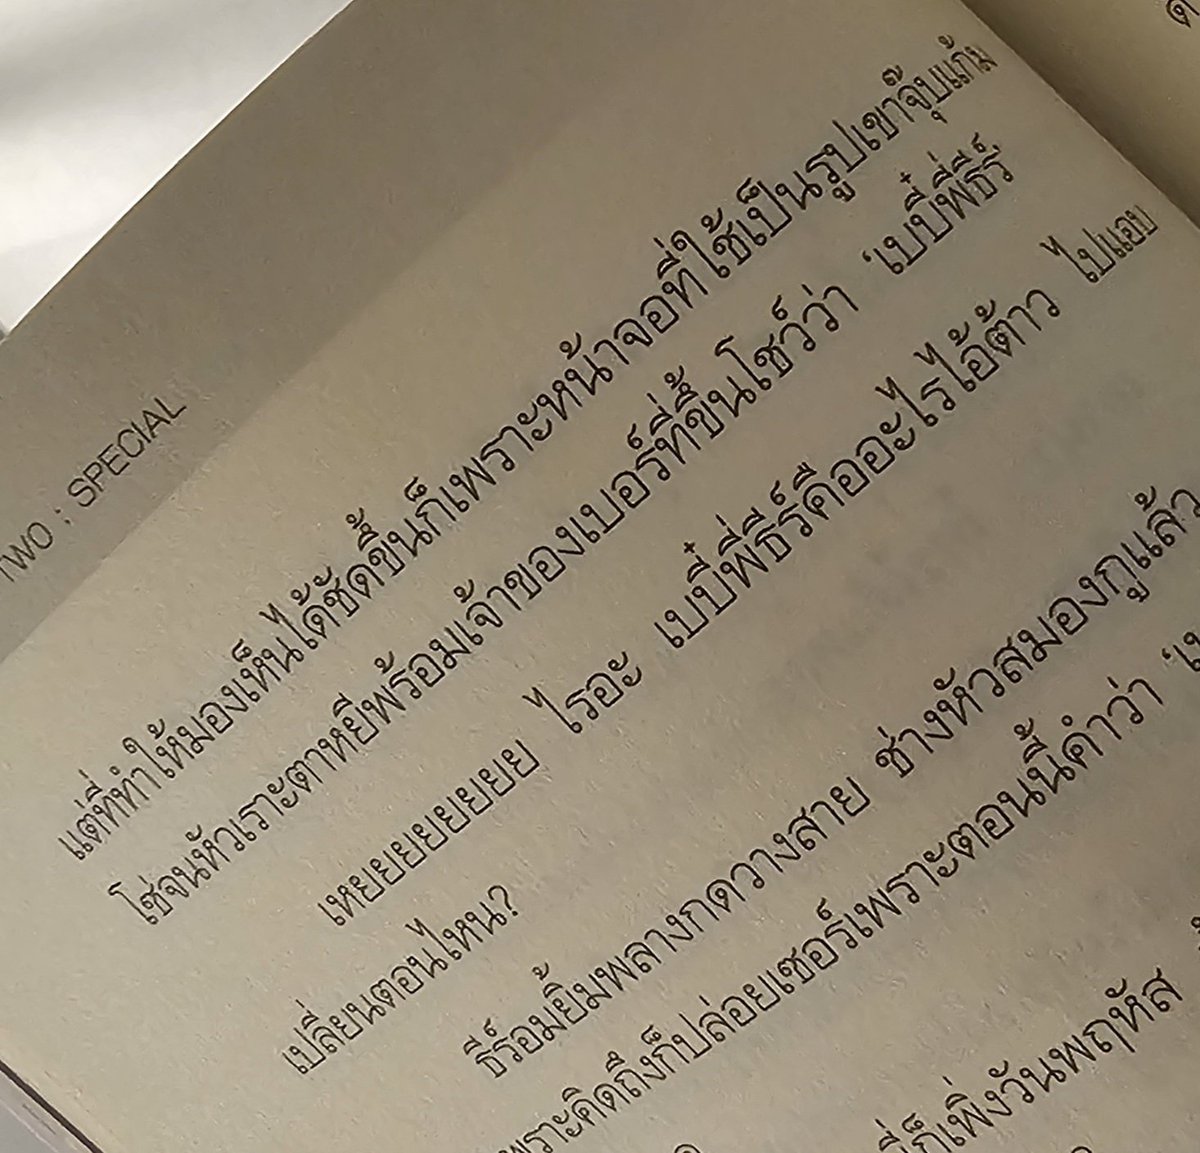 TWO : SPECIAL
แต่ที่ทำให้มองเห็นได้ชัดขึ้นก็เพราะหน้าจอที่ใช้เป็นรูปเขาจุ๊บแก้ม
โซ่จนหัวเราะตาหยีพร้อมเจ้าของเบอร์ที่ขึ้นโชว์ว่า ‘เบบี๋พี่ธีร์
เหยยยยยยยย ไรอะ เบบี๋พี่ธีร์คืออะไรไอ้ต้าว ไปแอบ
เปลี่ยนตอนไหน?
ธีร์อมยิ้มพลางกดวางสาย ช่างหัวสมองกูแล้ว
เพราะคิดถึงก็ปล่อยเซอร์เพราะตอนนี้คำว่า
ก็เพิ่งวันพฤหัส